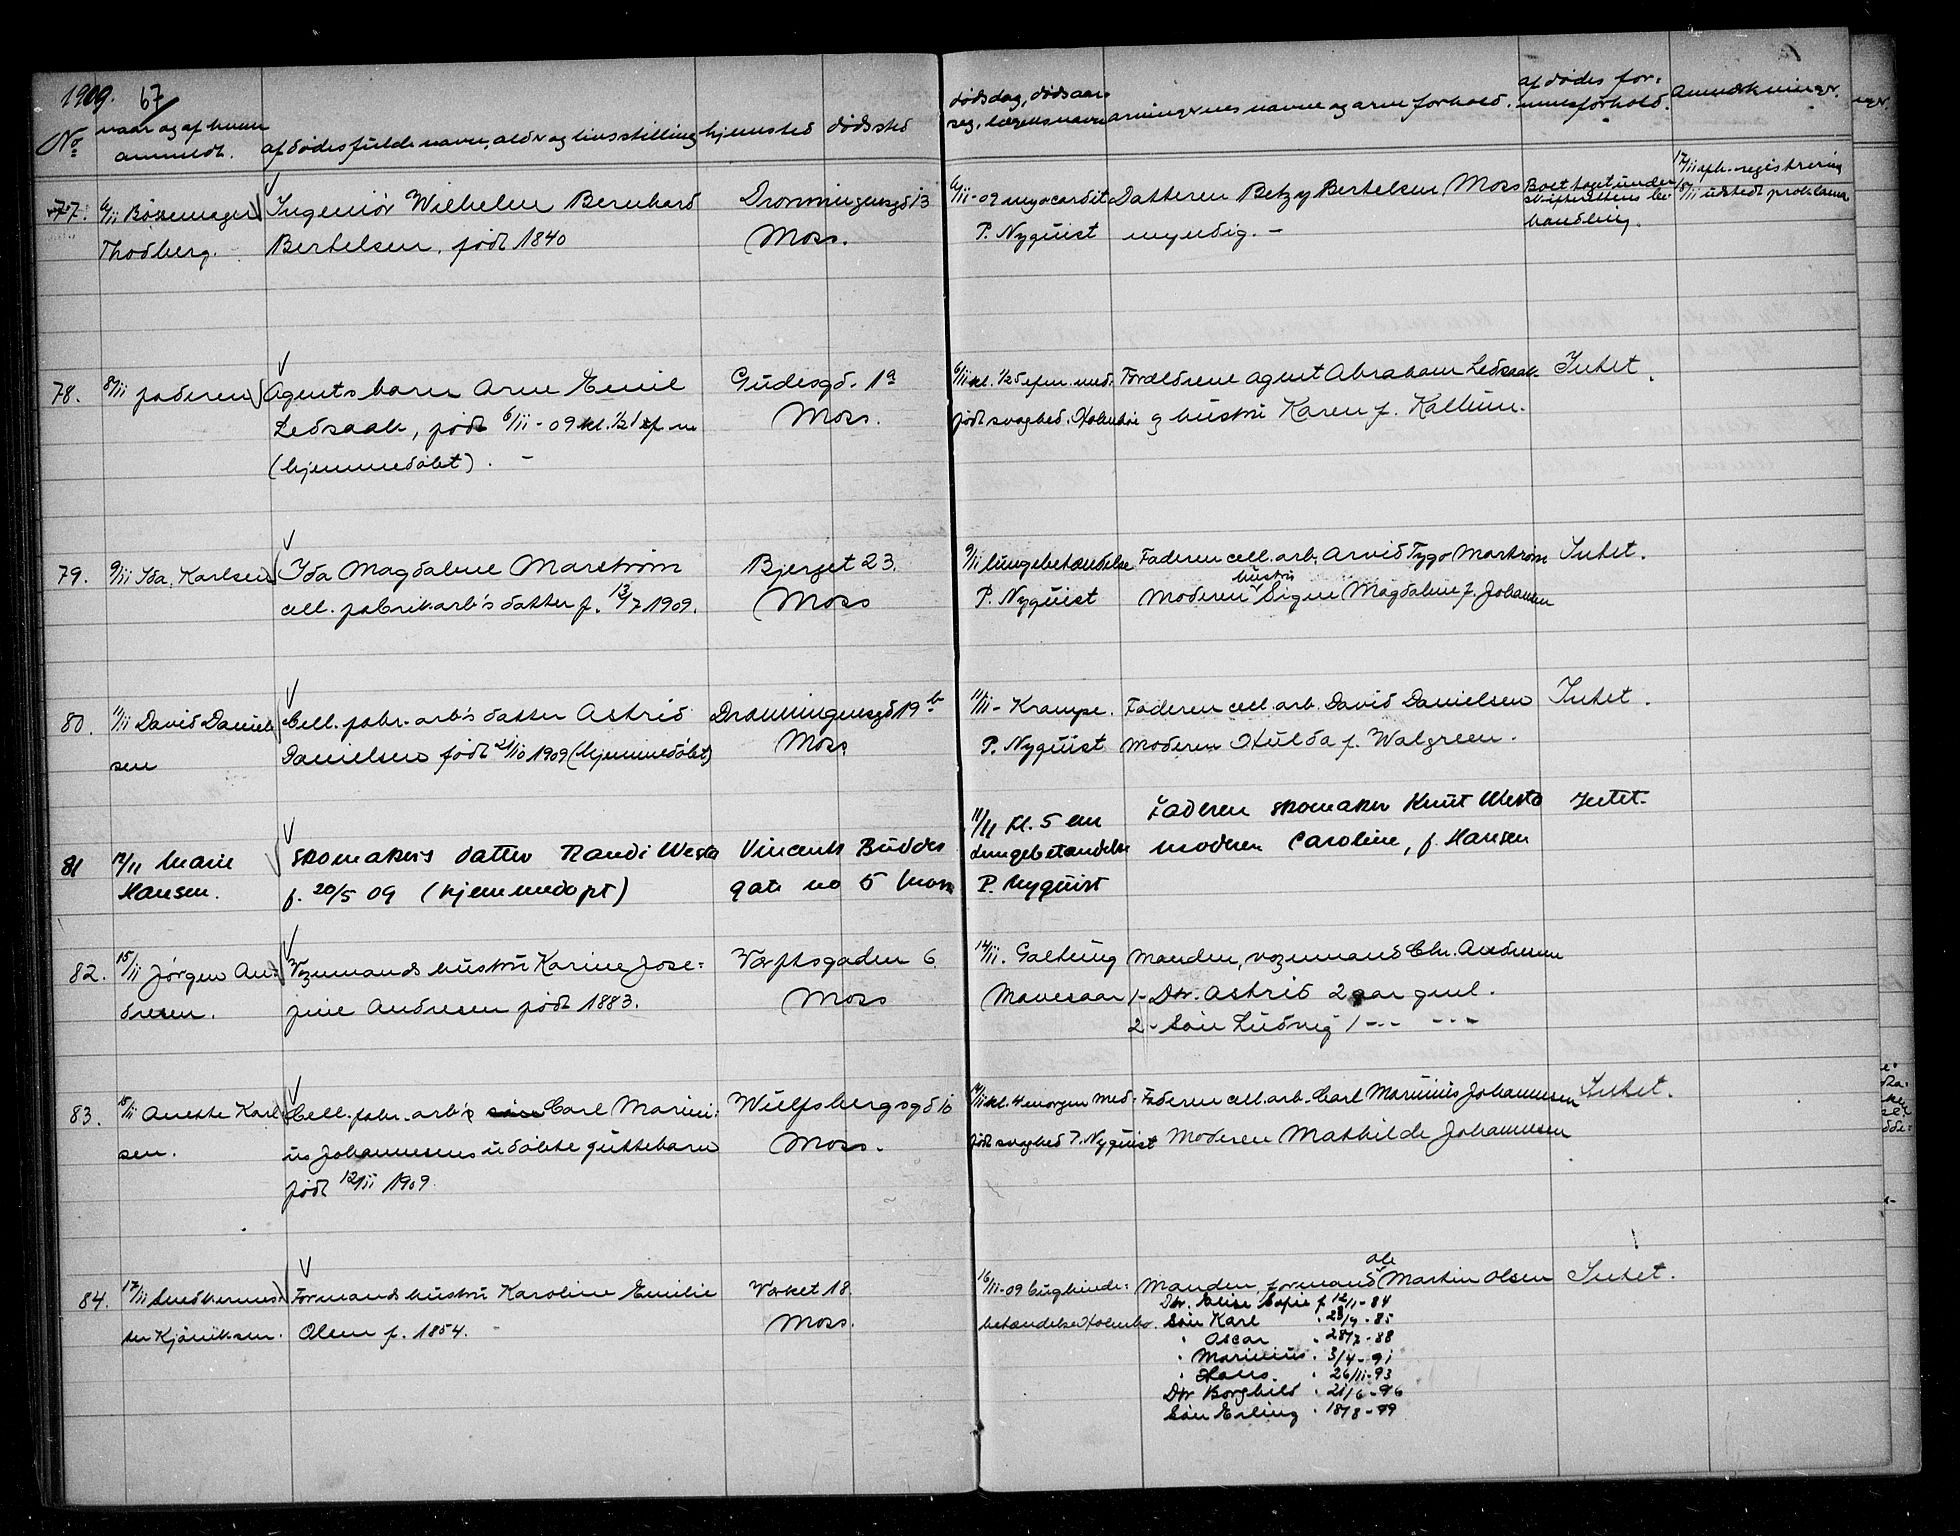 1909. 67
No
naar og af hvem
anmeldt.
af dødes fulde navn, alder og livsstilling
hjemsted dødssted
dødsdag, dødsaar-
sag, lægens navn
arvingernes navne og arveforhold.
af dødes for-
muesforhold.
Anmerkninger.
77. 6/11 Bössemager
Thodberg.
Ingeniör Wilhelm Bernhard
Bertelsen, född 1840
Dronningensgd 13
Moss.
6/11-09 myocardit
P. Nyquist
Datteren Betzy Bertelsen, Moss
myndig. -
Boet taget under
skifterettens be-
handling.
17/11 afh. registrering
18/11 udstedt proklama
78. 8/11 faderen
Agents barn Arne Emil
Ledsaak, född 6/11-09 kl. 1/2 1 ef m
(hjemmedöbt). -
Gudesgd. 1a
Moss.
6/11 kl. 1/2 5 efm. med-
född svaghed. Holmboe
Forældrene agent Abraham Ledsaak
og hustru Karen f. Kallum.
Intet.
79. 9/11 Ida Karlsen
Ida Magdalene Marström
cell. fabrikarb's datter f. 13/7 1909.
Bjerget 23.
Moss
9/11 lungebetændelse
P. Nyquist
Faderen cell. arb. Arvid Tygo Marström
hustru
Moderen Signe Magdalene f. Johansen
Intet.
80. 11/11 David Daniel-
sen
Cell. fabr. arb's datter Astrid
Danielsen född 21/10 1909 (hjemmedöbt)
Dronningensgd 19 b
Moss
11/11 - Krampe.
P. Nyquist
Faderen cell. arb. David Danielsen
Moderen Hulda f. Walgreen.
Intet.
81 12/11 Marie
Hansen.
Skomakers datter Randi Westa
f. 20/5 09 (hjemmedøpt)
Vincents Buddes
gate no 5 Moss
11/11 kl. 5 em
Lungebetændelse
P. Nyquist
Faderen skomaker Knut Westa
moderen Caroline, f. Hansen
Intet.
82. 15/11 Jörgen An-
dresen.
Vognmands hustru Karine Jose-
fine Andresen född 1883.
Værftsgaden 6.
Moss
14/11. Galtung
Mavesaar
Manden, vognmand Chr. Andresen
1- Dtr. Astrid 2 aar gml.
2- Sön Ludvig 1 -- ---
83. 15/11 Anette Karl-
sen.
Cell. fabr. arb's Carl Marini-
us Johannesens udöbte guttebarn
född 12/11 1909.
Wulfsbergsgd 16
Moss.
14/11 kl. 4 morgen med-
född svaghed P. Nyquist
Faderen cell. arb. Carl Marinius Johannesen
Moderen Mathilde Johannesen
Intet.
84. 17/11 Snedkermes-
ter Kjöniksen.
Formands hustru Karoline Emilie
Olsen f. 1854. -
Værket 18.
Moss.
16/11-09 Bughinde-
betændelse Holmbo.
Ole
Manden, formand Martin Olsen
Dtr. Elise Sofie f 12/1-84
Sön Karl " 28/9-85
" Oscar " 28/3-88
" Marinius " 3/4-91
" Hans " 26/11-93
Dtr Borghild " 21/6-96
Sön Erling " 18/8-99
Intet.